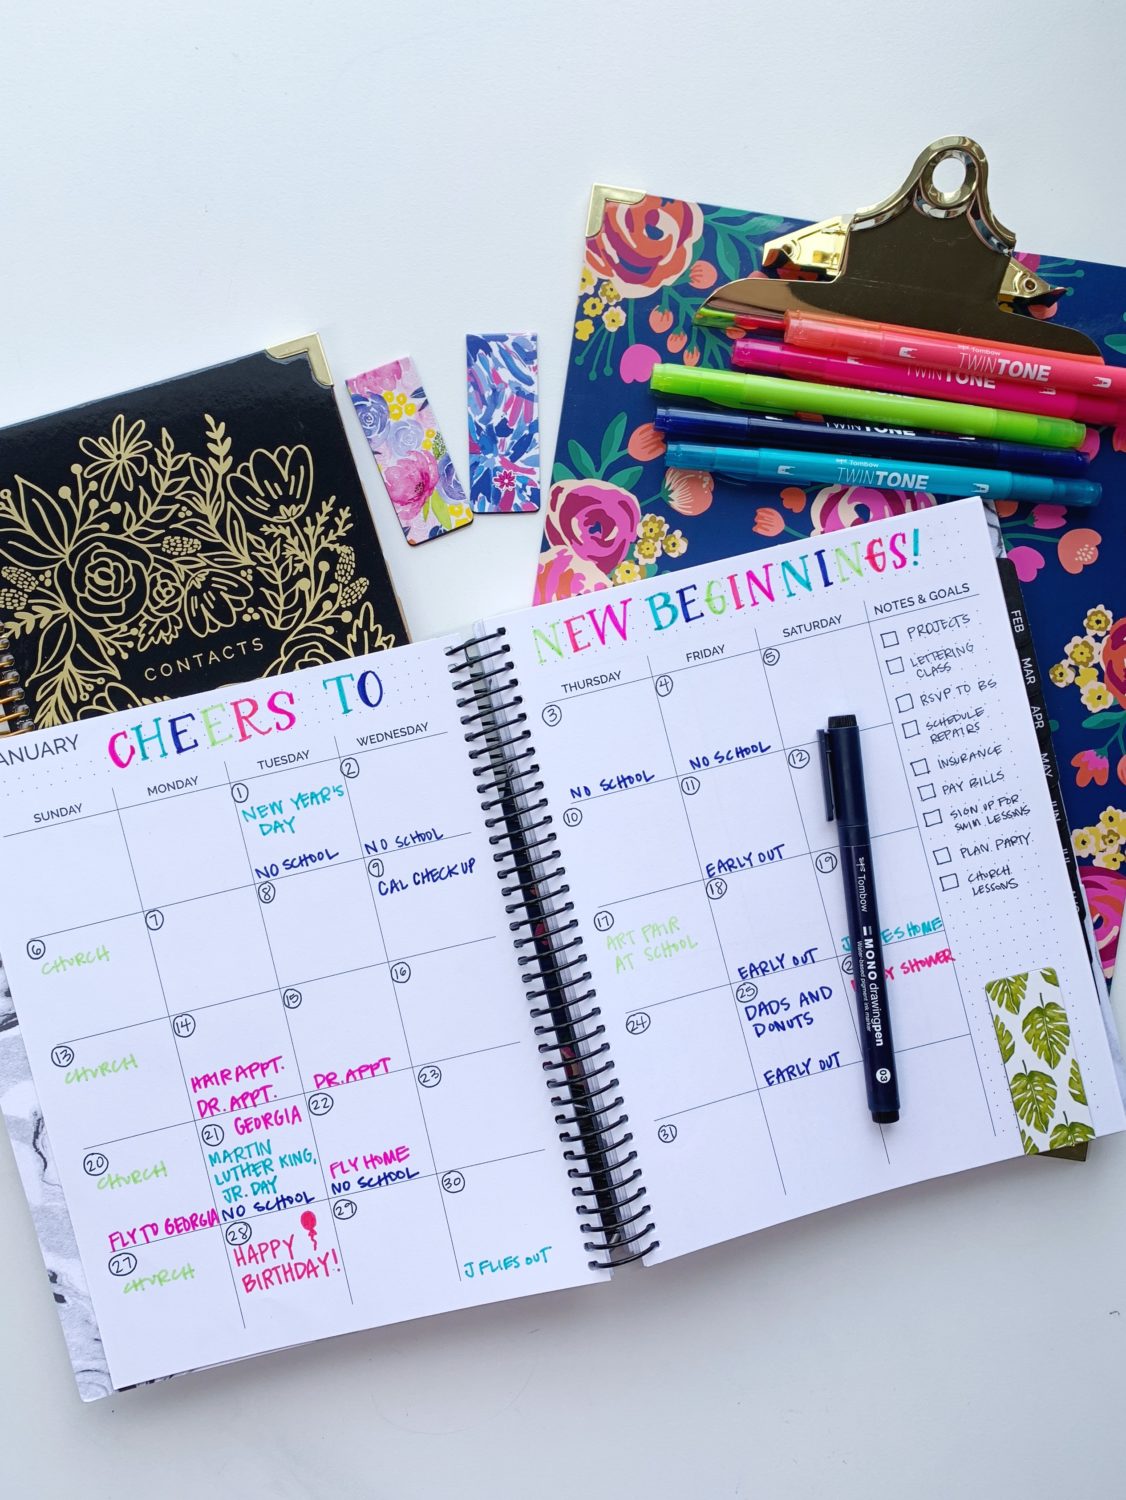 CONTACTS
Tombow
TWINTONE
TWINTONE
TWINTONE
Tombow
TWINTONE
CHEERS TO
NEW BEGINNINGS!
ANUARY
SUNDAY
MONDAY
TUESDAY
WEDNESDAY
THURSDAY
FRIDAY
SATURDAY
NOTES & GOALS
1
NEW YEAR'S
DAY
NO SCHOOL
2
NO SCHOOL
3
NO SCHOOL
4
NO SCHOOL
5
6
CHURCH
7
8
9
CAL CHECKUP
10
11
EARLY OUT
12
13
CHURCH
14
HAIR APPT.
DR. APPT.
15
DR. APPT
16
17
ART FAIR
AT SCHOOL
18
EARLY OUT
19
HOME
20
CHURCH
FLY TO GEORGIA
21
GEORGIA
MARTIN
LUTHER KING,
JR. DAY
NO SCHOOL
22
FLY HOME
NO SCHOOL
23
24
25
DADS AND
DONUTS
EARLY OUT
SHOWER
27
CHURCH
28
HAPPY
BIRTHDAY!
29
30
J FLIES OUT
31
PROJECTS
LETTERING
CLASS
RSVP TO BS
SCHEDULE
REPAIRS
INSURANCE
PAY BILLS
SIGN UP FOR
SWIM LESSONS
PLAN PARTY
CHURCH
LESSONS
FEB
MAR
APR
MAY
JUN
Tombow
MONO drawing pen
Water-based pigment ink marker
03